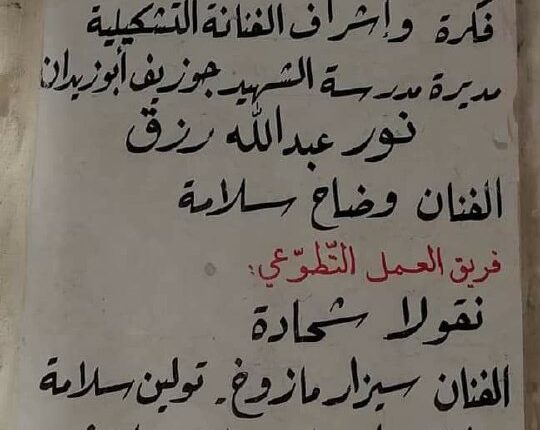 فكرة وإشراف الفنانة التشكيلية
مديرة مدرسة الشهيد جوزيف أبوزيدان
نور عبدالله رزق
الفنان وضاح سلامة
فريق العمل التّطوّعي:
نقولا شحادة
الفنان سيزار مازوخ. تولين سلامة